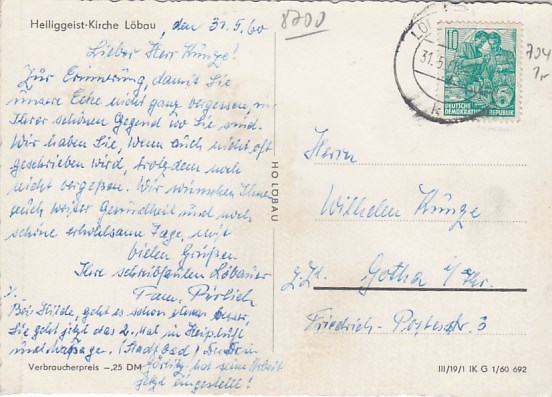 Heiliggeist-Kirche Löbau
, den 31.5.60
8700
Lieber Herr Künze!
Zur Erinnerung, damit Sie
unsere Ecke nicht ganz vergessen, in
Ihrer schönen Gegend wo Sie sind.
Wir haben Sie, wenn auch nicht oft
geschrieben wird, trotzdem noch
nicht vergeßen. Wir wünschen Ihnen
auch weiter Gesundheit und noch
schöne erholsame Tage, mit
vielen Grüßen
Ihre schreibfaulen Löbauer
Fam.
Bei Hilde, geht es schon etwas besser,
Sie geht jetzt das 2. Mal in
und Massage. (Stadtbad)
Görlitz hat seine Arbeit
jetzt eingestellt!
Verbraucherpreis –,25 DM
HO LÖBAU
10
DEUTSCHE
DEMOKRATISCHE REPUBLIK
31.5.60
Herrn
Wilhelm Künze
z.Zt. Gotha i/Thr.
Friedrich- 3
III/19/1 IK G 1/60 692